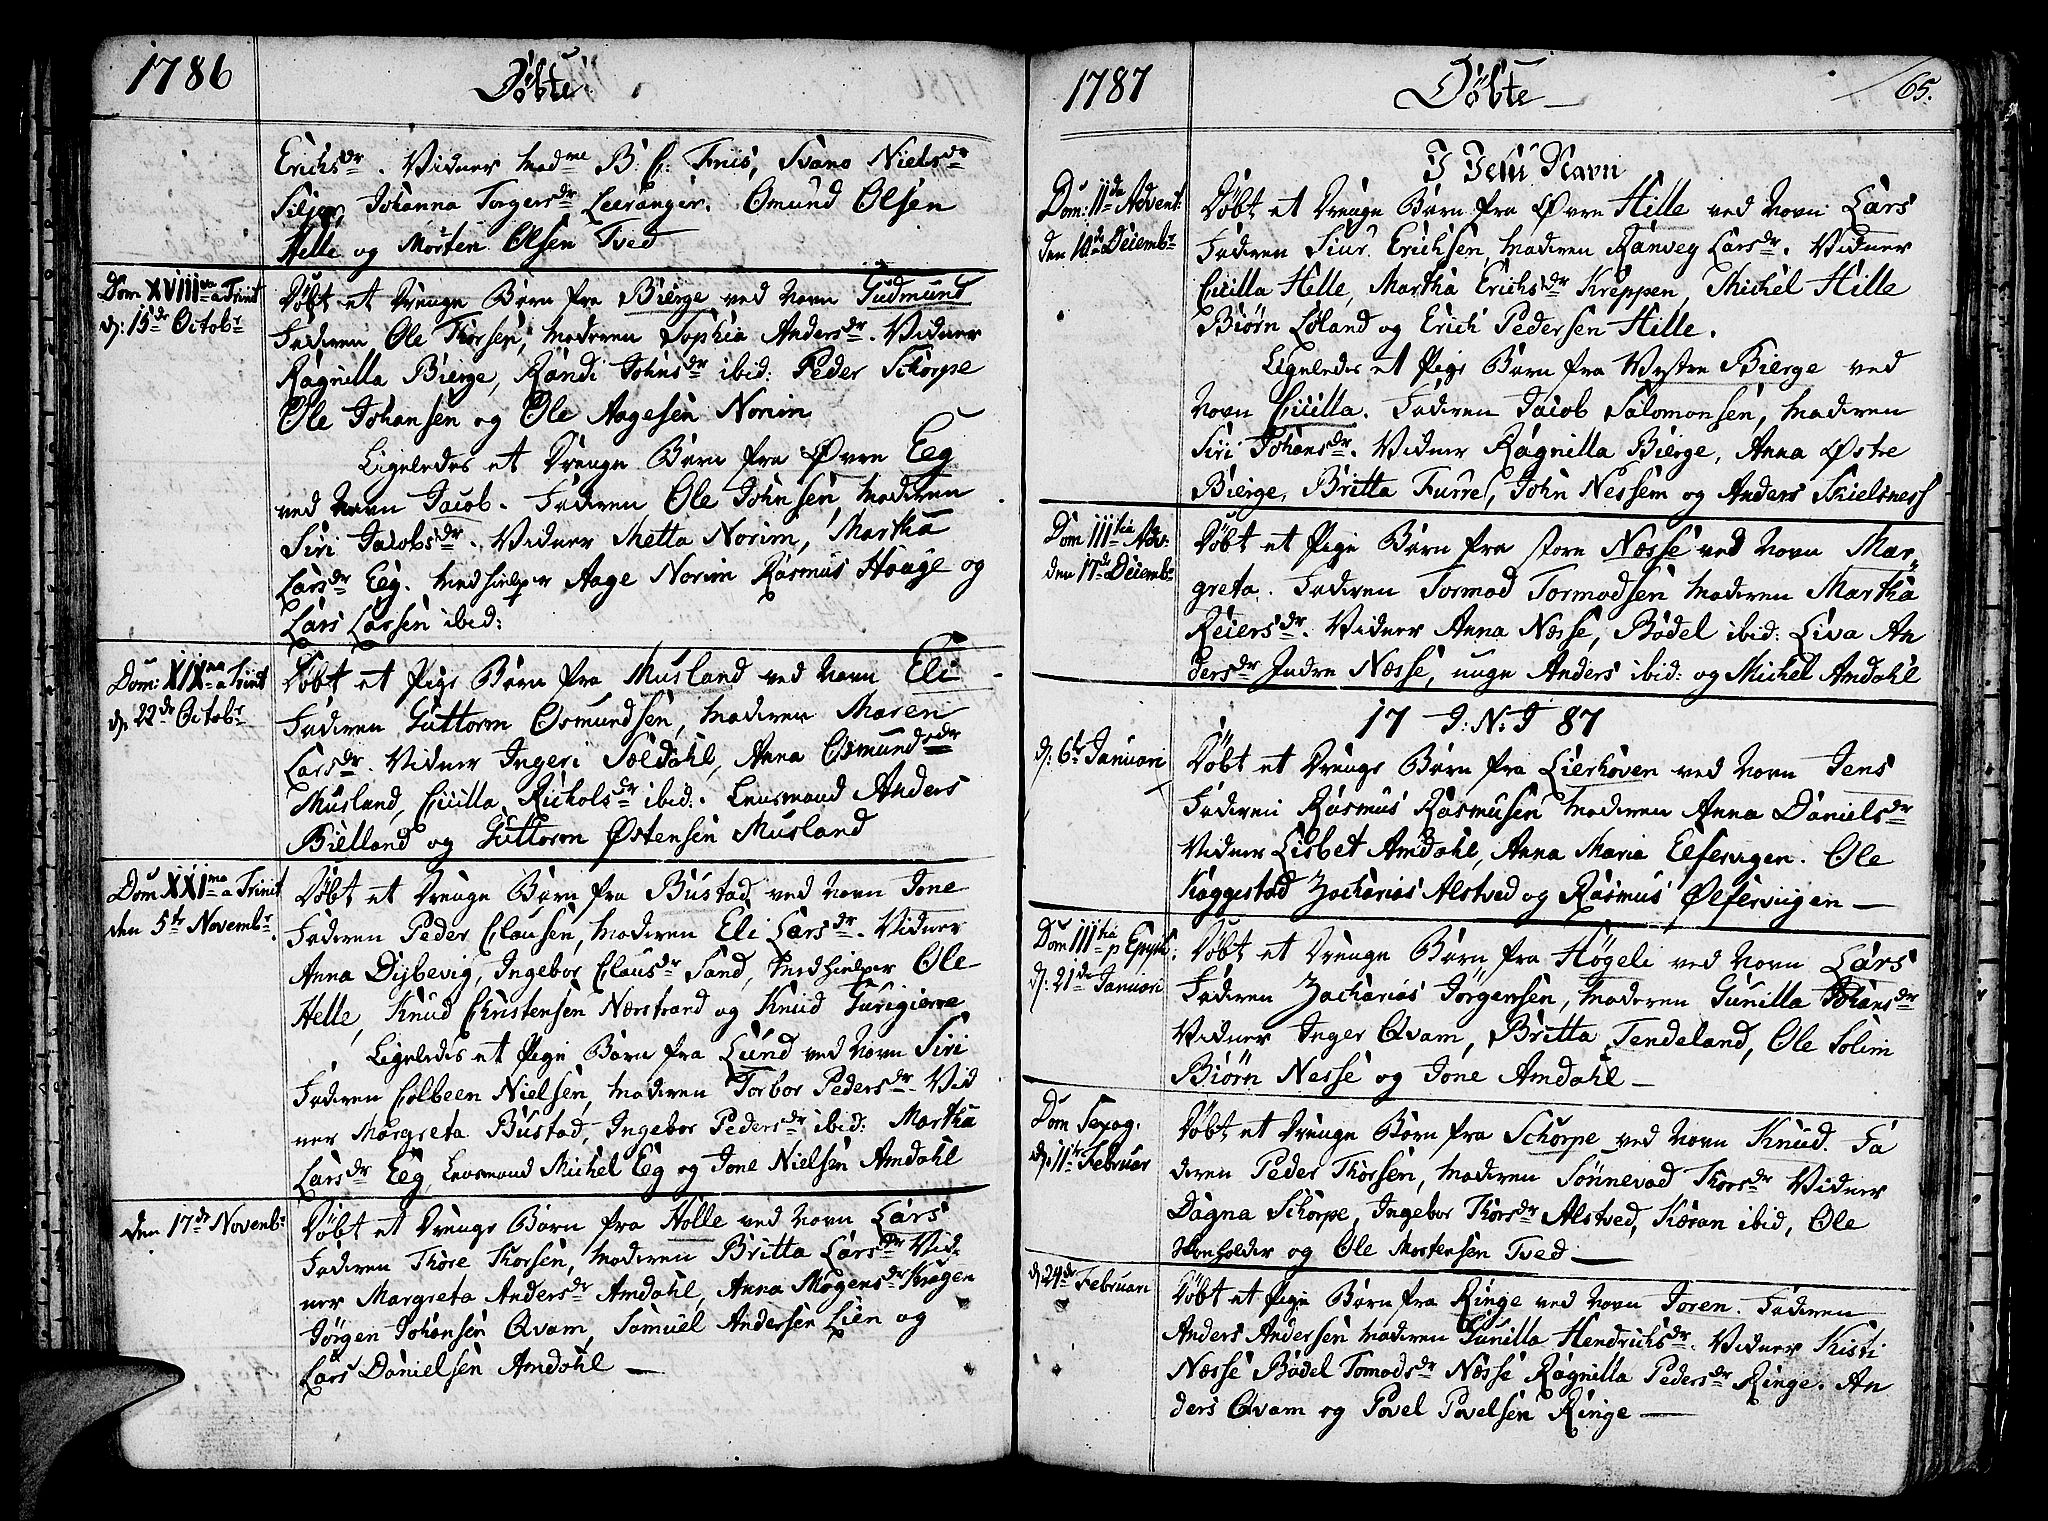 1786
Döbte
Erichsdr. Vidner Madme B. C. Friis, Svano Nielsdr
Siljer, Johanna Torgersdr Leeranger. Omund Olsen
Helle og Morten Olsen Tved
Dom XVIIIva a Trinit
d: 15de Octobr
Döbt et Drenge Barn fra Bierge ved Navn Gudmund
Faderen Ole Thorsen, Moderen Sophia Andersdr. Vidner
Ragnilla Bierge, Randi Johnsdr ibid: Peder Schorpe
Ole Johansen og Ole Aagesen Norim
Ligeledes et Drenge Barn fra Øvre Eeg
ved Navn Jacob. Faderen Ole Johnsen, Moderen
Siri Jacobsdr. Vidner Metta Norim, Martha
Larsdr Eeg. Medhielper Aage Norim Rasmus Hauge og
Lars Larsen ibid:
Dom: XIXna a Trinit
d: 22de Octobr
Döbt et Pige Barn fra Musland ved Navn Eli
Faderen Guttorm Osmundsen, Moderen Maren
Larsdr. Vidner Ingeri Soldahl, Anna Osmundsdr
Musland, Cicilla Richolsdr ibid: Lensmand Anders
Bielland og Guttorm Østensen Musland
Dom XXIma a Trinit
den 5te Novembr
Döbt et Drenge Barn fra Bustad ved Navn Jone
Faderen Peder Clausen, Moderen Eli Larsdr. Vidner
Anna Disbevig, Ingebor Clausdr Sand, Medhielper Ole
Helle, Knud Christensen Nærstrand og Knud
Ligeledes et Pige Barn fra Lund ved Navn Siri
Faderen Colbeen Nielsen, Moderen Torbor Pedersdr. Vid
ner Margreta Bustad, Ingebor Pedersdr ibid: Martha
Larsdr Eeg, Lensmand Michel Eeg og Jone Nielsen Amdahl
den 17de Novembr
Döbt et Drenge Barn fra Holle ved Navn Lars
Faderen Thore Thorsen, Moderen Britta Larsdr Vid-
ner Margreta Andersdr Amdahl, Anna Mogensdr Kragen
Jørgen Johansen Qvam, Samuel Andersen Lien og
Lars Danielsen Amdahl —
1787
Döbte
65.
I Jesu Navn
Dom: IIda Advent:
den 10de Decembr
Döbt et Drenge Barn fra Øvre Hille ved Navn Lars
Faderen Siur Erichsen, Moderen Ranveg Larsdr. Vidner
Cicilla Hille, Martha Erichsdr Kreppen, Michel Hille
Biörn Løland og Erich Pedersen Hille.
Ligeledes et Pige Barn fra Vestre Bierge ved
Navn Cicilla. Faderen Jacob Salomonsen, Moderen
Siri Johansdr. Vidner Ragnilla Bierge, Anna Østre
Bierge, Britta Furre, John Nessem og Anders Skielsness
Dom IIItia Adv:
den 17de Decembr
Döbt et Pige Barn fra store Næsse ved Navn Mar-
greta. Faderen Tormod Tormodsen Moderen Martha
Reiersdr. Vidner Anna Næsse, Bodel ibid: Liva An
dersdr Indre Næsse, unge Anders ibid: og Michel Amdahl
17 I: N: J 87
d: 6te Januari
Döbt et Drenge Barn fra Lierhoven ved Navn Jens
Faderen Rasmus Rasmusen Moderen Anna Danielsdr
Vidner Lisbet Amdahl, Anna Maria Elfervigen. Ole
Kaggestad Zacharias Alstved og Rasmus Ølfervigen —
Dom IIItia p Epiph:
d: 21de Januari
Döbt et Drenge Barn fra Högeli ved Navn Lars
Faderen Zacharias Jørgensen, Moderen Gunilla Johansdr
Vidner Inger Qvam, Britta Tendeland, Ole Solim
Biørn Nesse og Jone Amdahl —
Dom Sexag.
d: 11te Februar
Döbt et Drenge Barn fra Schorpe ved Navn Knud. Fa
deren Peder Thorsen, Moderen Sönnevad Thorsdr Vidner
Dagna Schorpe, Ingebor Thorsdr Alstved, Karan ibid, Ole
og Ole Mortensen Tved —
d: 24de Februari
Döbt et Pige Barn fra Ringe ved Navn Joren. Faderen
Anders Andersen Moderen Gunilla Hendrichsdr. Vidner Kisti
Næsse Bodel Tomodsdr Næsse Ragnilla Pedersdr Ringe. An
ders Qvam og Povel Povelsen Ringe —